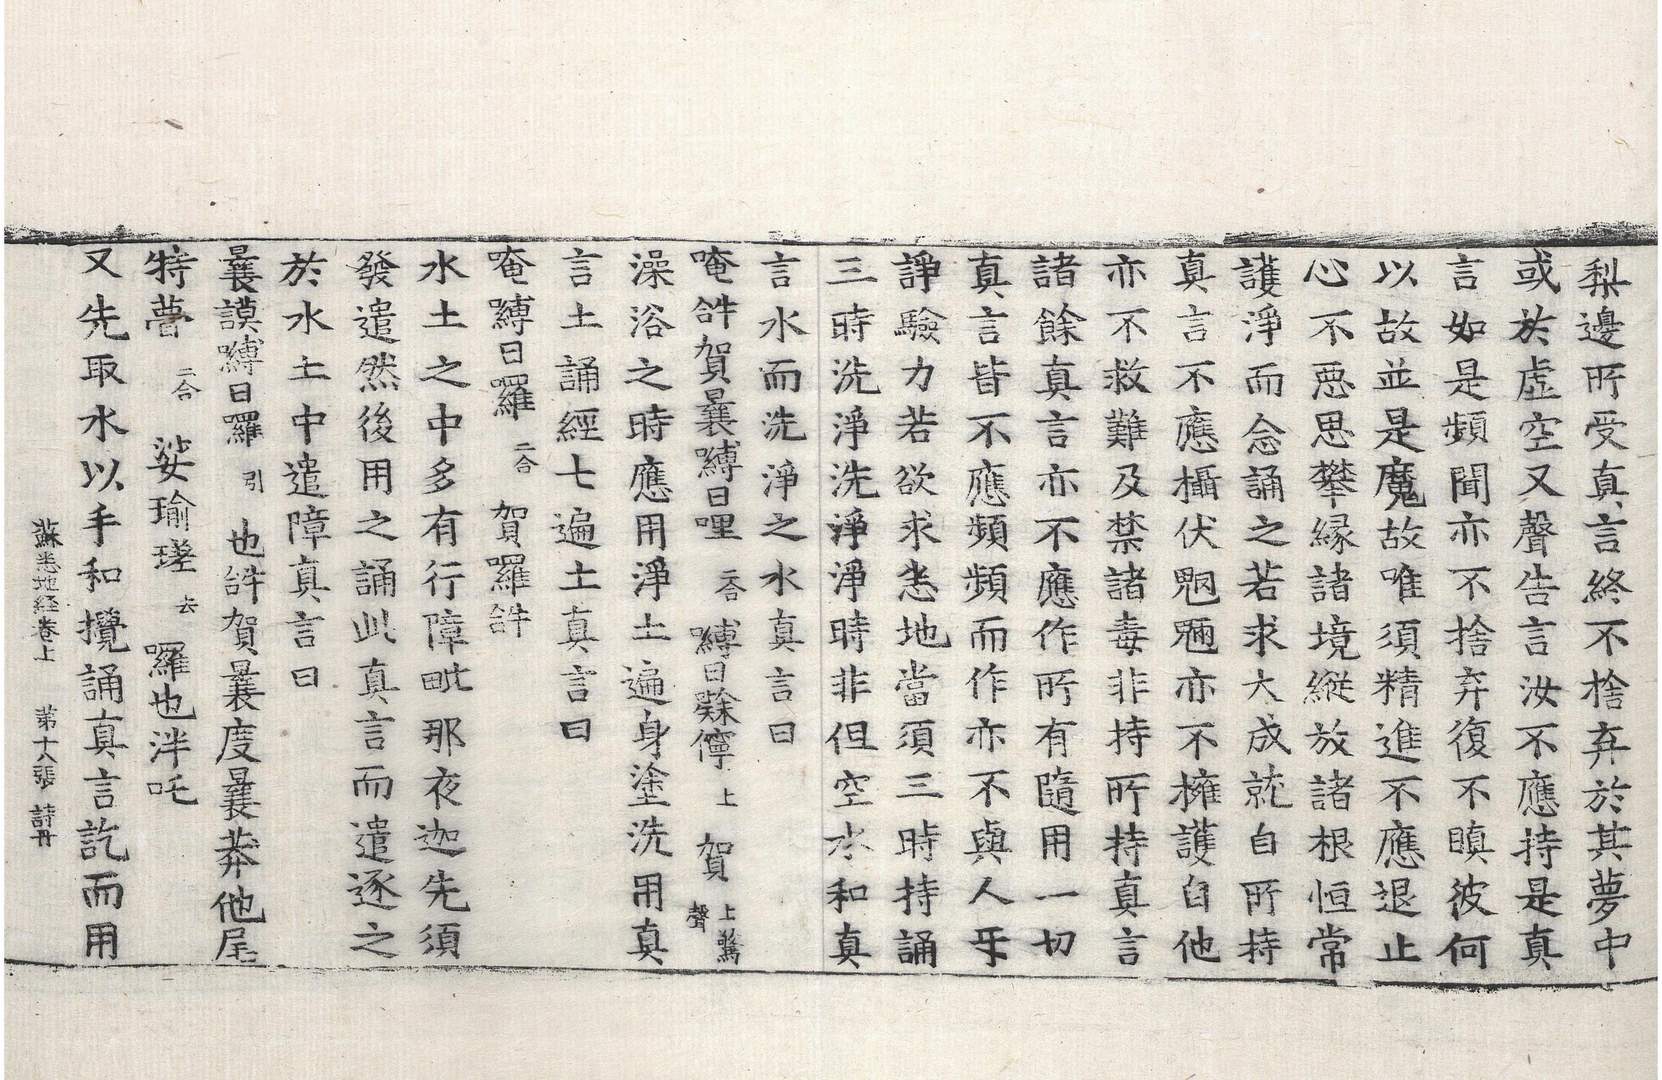 梨邊所受真言終不捨弃於其夢中
或於虛空又聲告言汝不應持是真
言如是頻聞亦不捨弃復不瞋彼何
以故並是魔故唯須精進不應退止
心不惡思攀緣諸境縱放諸根恒常
護淨而念誦之若求大成就自所持
真言不應攝伏魍魎亦不擁護自他
亦不救難及禁諸毒非持所持真言
諸餘真言亦不應作所有隨用一切
真言皆不應頻頻而作亦不與人㸦
諍驗力若欲求悉地當須三時持誦
三時洗淨洗淨淨時非但空水和真
言水而洗淨之水真言曰
唵𤙖賀曩嚩日哩二合嚩日𡃤儜上賀上驚聲
澡浴之時應用淨土遍身塗洗用真
言土誦經七遍土真言曰
唵嚩日囉二合賀囉𤙖
水土之中多有行障毗那夜迦先須
發遣然後用之誦此真言而遣逐之
於水土中遣障真言曰
曩謨嚩日囉引也𤙖賀曩曩度曩莽他尾
特𠷑二合娑瑜瑳去囉也泮吒
又先取水以手和攪誦真言訖而用
蘇悉地経卷上 第十八張 詩丹